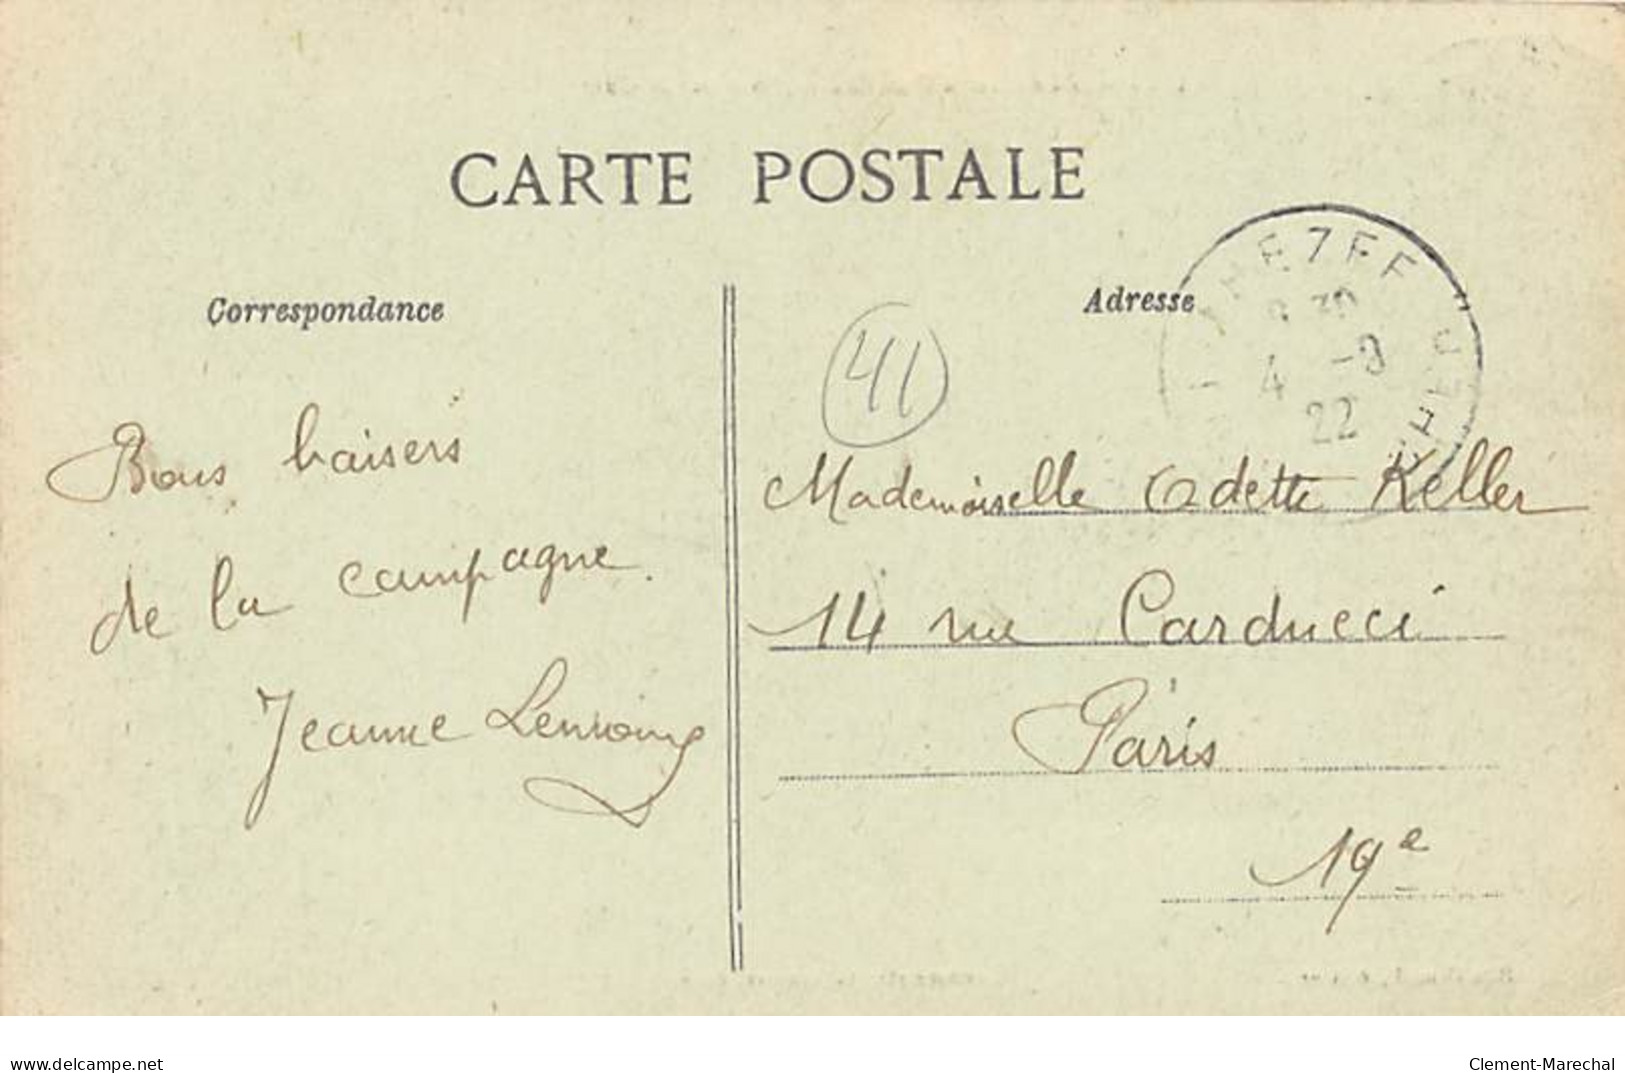 CARTE POSTALE
Correspondance
Adresse
30
4 -9
22
41
Bons baisers
de la campagne.
Jeanne
Mademoiselle Odette Keller
14 rue Carducci
Paris
19e
www.delcampe.net
Clement-Marechal